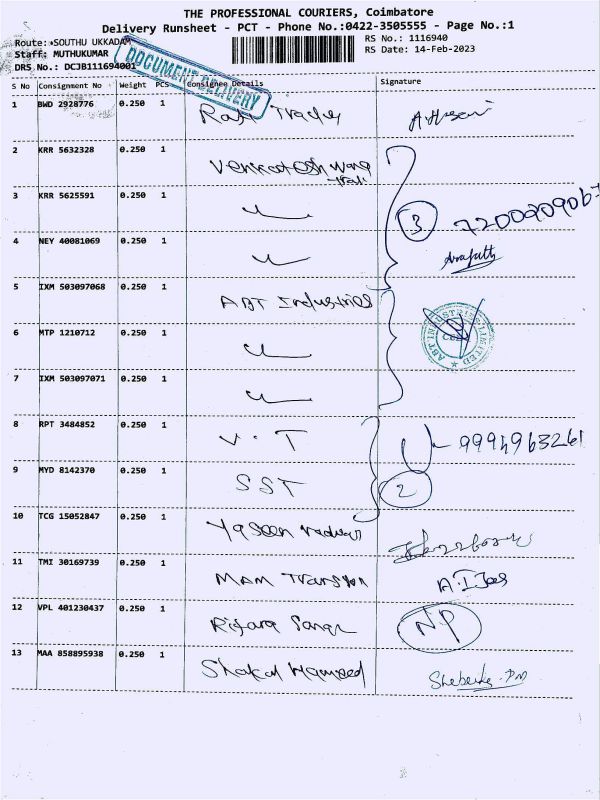 THE PROFESSIONAL COURIERS, Coimbatore
Delivery Runsheet - PCT - Phone No.:0422-3505555 - Page No.:1
Route: *SOUTHU UKKADAM
RS No.: 1116940
Staff: MUTHUKUMAR
RS Date: 14-Feb-2023
DRS No.: DCJB111694001
DOCUMENT DELIVERY
S No Consignment No Weight PCS Consignee Details Signature
1 BWD 2928776 0.250 1 Raja Traders
2 KRR 5632328 0.250 1 Venkatesh
3 KRR 5625591 0.250 1 3 7200909067
4 NEY 40081069 0.250 1 Arafath
5 IXM 503097068 0.250 1 ABT Industries
ABT INDUSTRIES LIMITED
6 MTP 1210712 0.250 1
7 IXM 503097071 0.250 1
8 RPT 3484852 0.250 1 V.T 9994963261
9 MYD 8142370 0.250 1 SST 2
10 TCG 15052847 0.250 1 Yaseen
11 TMI 30169739 0.250 1 MAM
12 VPL 401230437 0.250 1 NP
13 MAA 858895938 0.250 1 Hameed